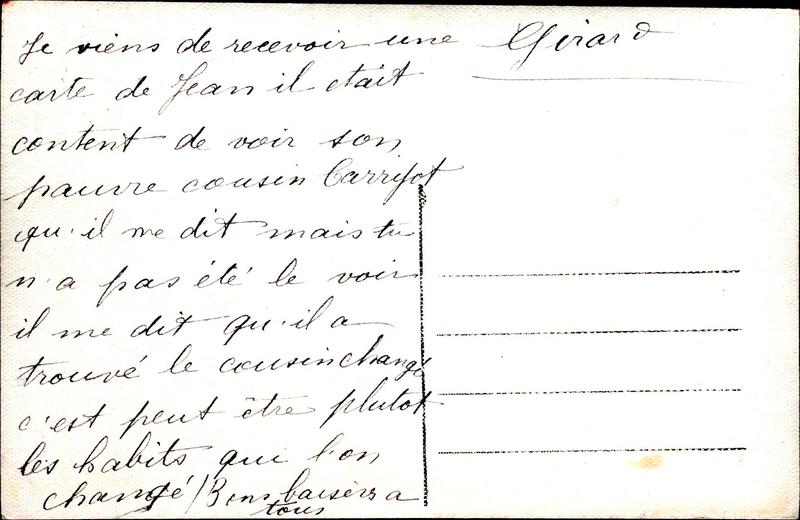 Je viens de recevoir une
carte de Jean il etait
content de voir son
pauvre cousin Carrifot
qu'il me dit mais tu
n'a pas été le voir
il me dit qu'il a
trouvé le cousin changé
c'est peut être plutot
les habits qui l'on
changé / Bons baisers a
tous
Girard